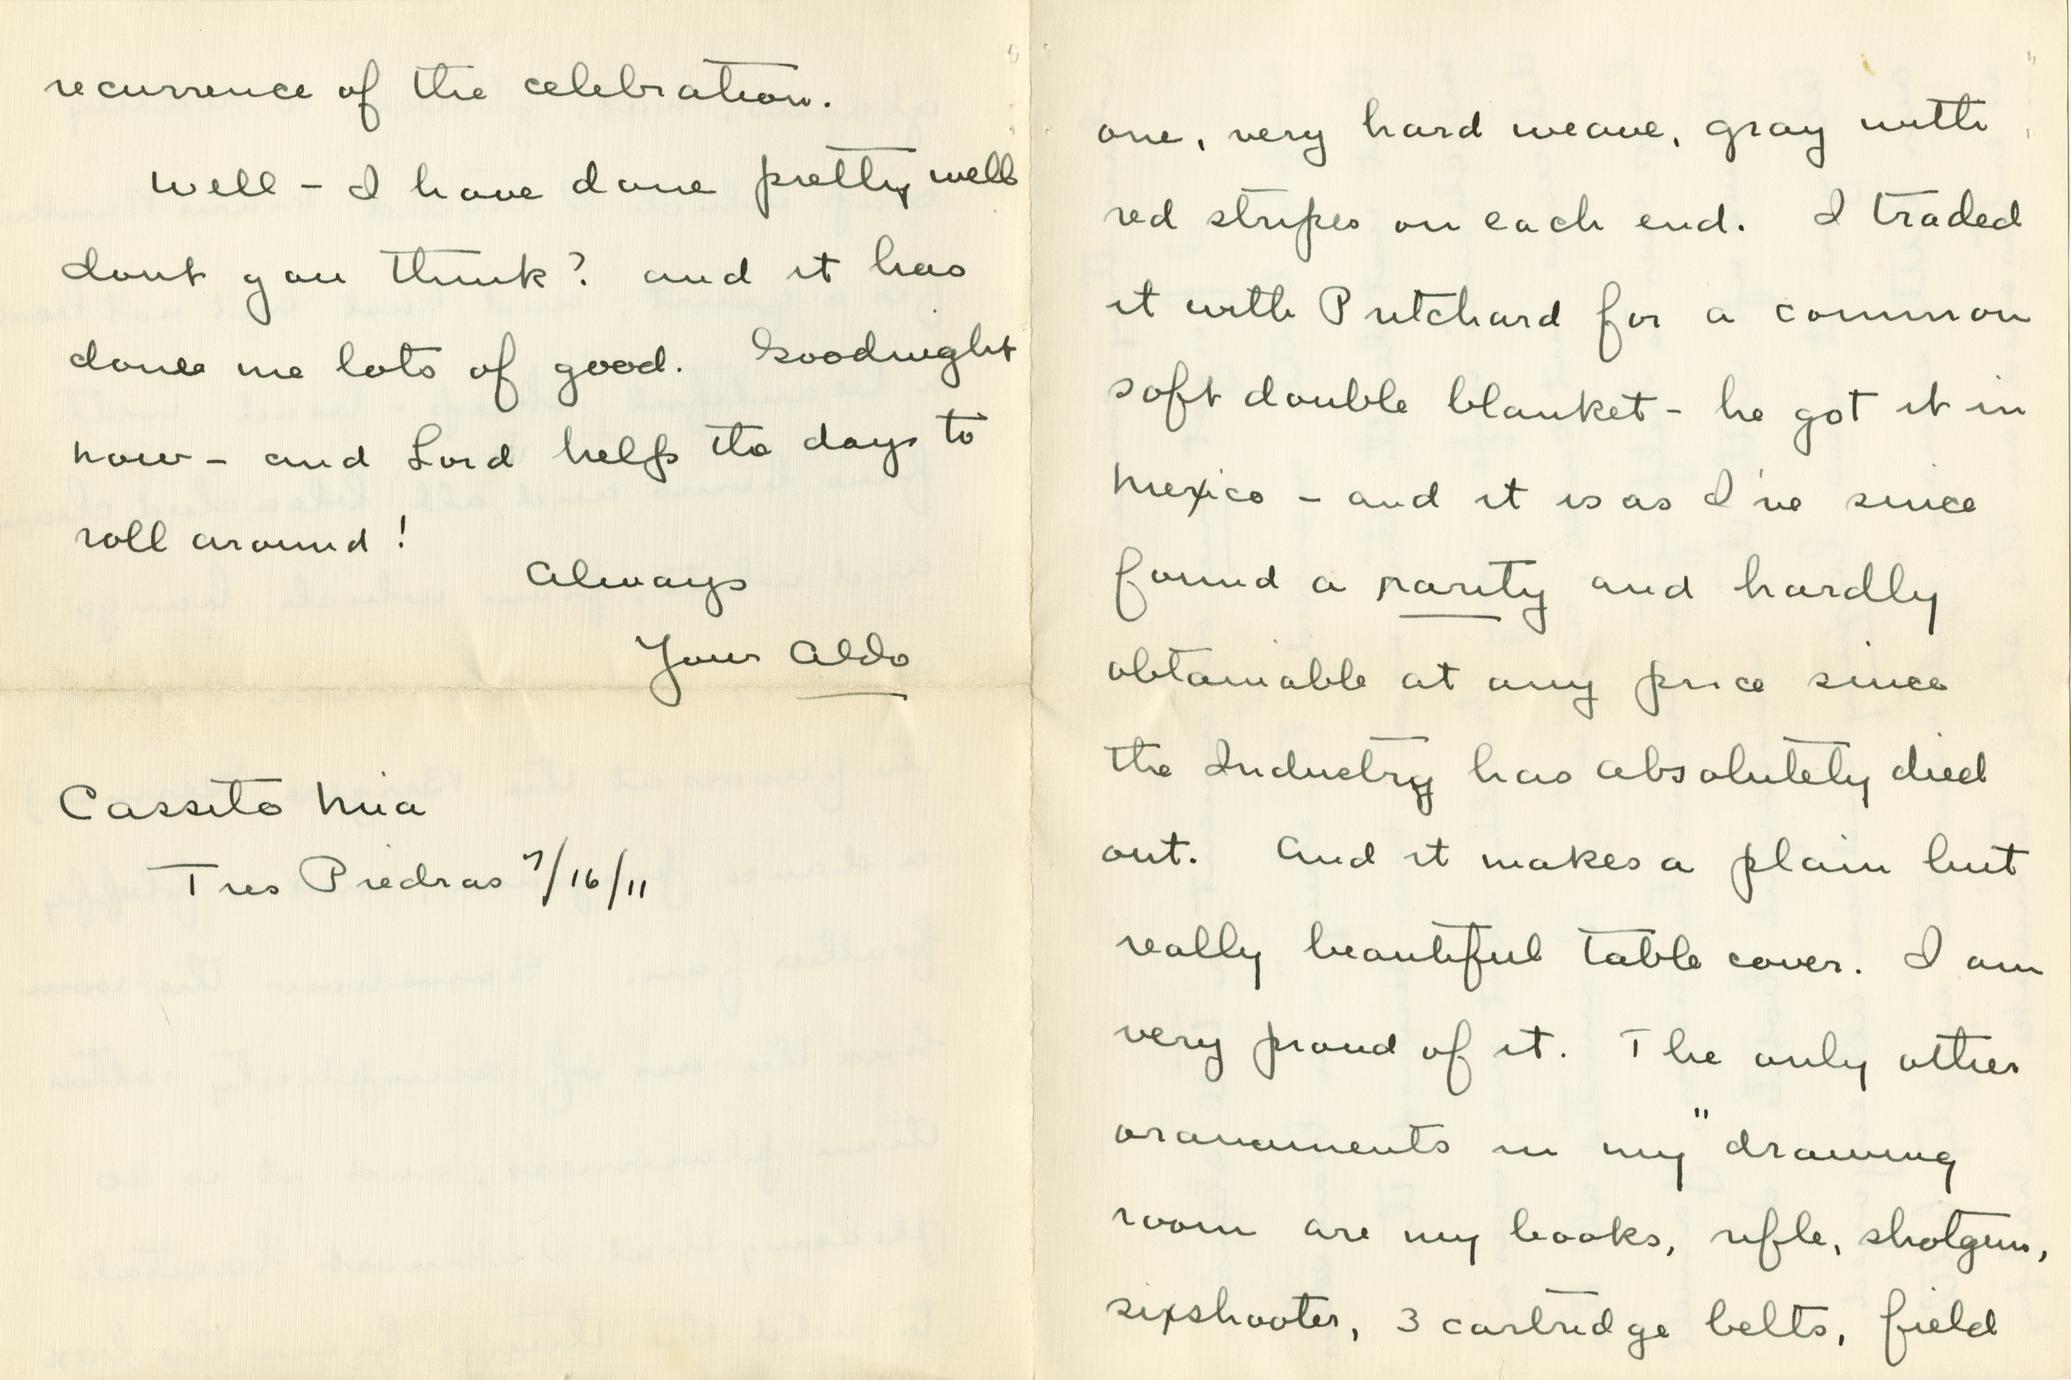 recurrence of the celebration.
Well – I have done pretty well
dont you think? and it has
done me lots of good. Goodnight
now – and Lord help the days to
roll around!
Always
Your Aldo
Cassito Mia
Tres Piedras 7/16/11
one, very hard weave, gray with
red stripes on each end. I traded
it with Pritchard for a common
soft double blanket – he got it in
Mexico – and it is as I've since
found a rarity and hardly
obtainable at any price since
the Industry has absolutely died
out. And it makes a plain but
really beautiful table cover. I am
very proud of it. The only other
oranaments in my "drawing
room are my books, rifle, shotgun,
sixshooter, 3 cartridge belts, field